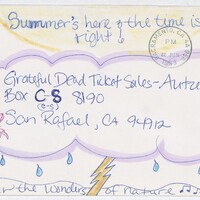 Summer's here & the time is
right!
SACRAMENTO, CA
PM
Grateful Dead Ticket Sales-
Box C-S 8190
(C-S)
San Rafael, CA 94912
the wonders of nature ♫